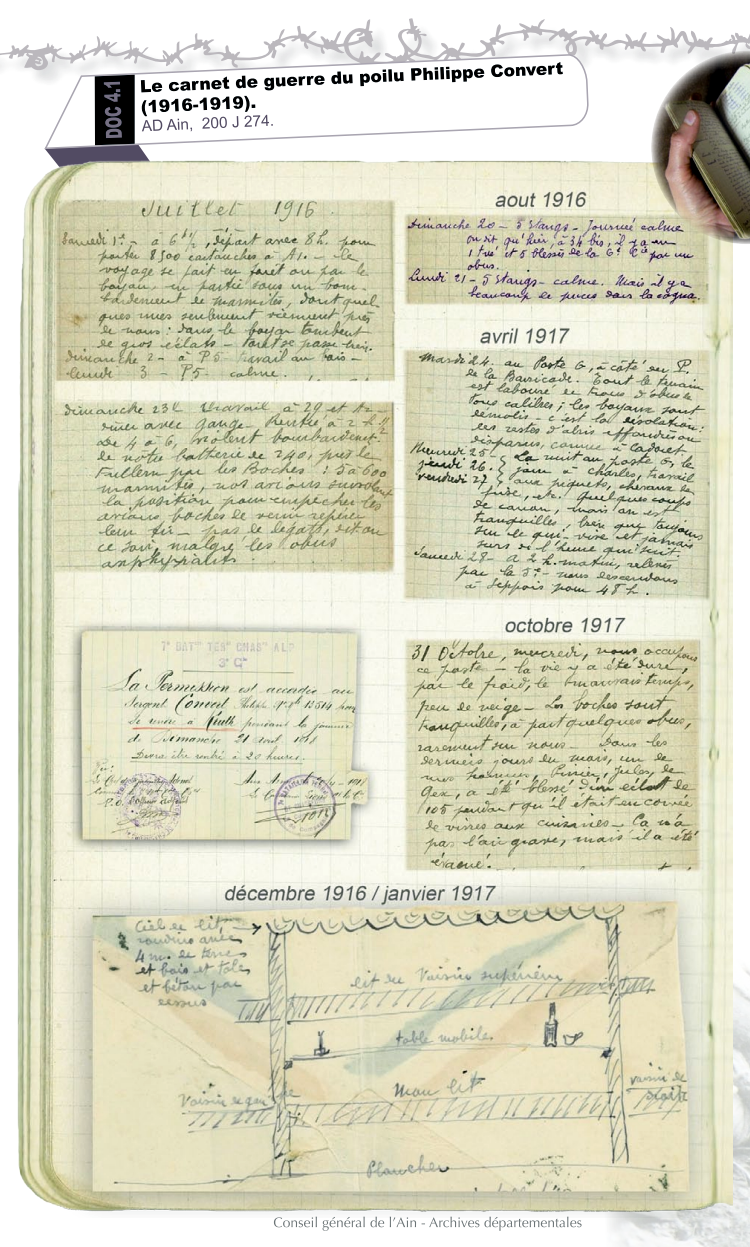 DOC 4.1
Le carnet de guerre du poilu Philippe Convert
(1916-1919).
AD Ain, 200 J 274.
Juillet 1916.
Samedi 1er - à 6h 1/2, départ avec 8 h. pour
porter 8500 cartouches à A1. - le
voyage se fait en forêt ou par le
boyau, en partie sous un bom-
bardement de marmites, dont quel
ques unes seulement viennent près
de nous : dans le boyau tombent
de gros éclats - tout se passe bien.
Dimanche 2 - à P5 travail au bois -
Lundi 3 - P5 calme.
Dimanche 23 travail à 29 et
diner avec Gange. Rentré à 2 h 1/2
De 4 à 6, violent bombardement
de notre batterie de 240, près le
Fullern par les Boches : 5 à 600
marmites, nos avions survolent
la position pour empêcher les
avions boches de venir repérer
leur tir - pas de dégâts, dit on
ce soir, malgré les obus
asphyxiants.
aout 1916
Dimanche 20 - 5 Etangs - Journée calme
on dit qu'hier, à 34 bis, il y a eu
1 tué et 5 blessés de la 6e Cie par un
obus.
Lundi 21 - 5 Etangs - calme. Mais il y a
beaucoup de puces dans la cagna.
avril 1917
Mardi 24. au Poste G, à côté du P.
de la Barricade. Tout le terrain
est labouré de trous d'obus de
tous calibres ; les boyaux sont
démolis - c'est la désolation :
les restes d'abris effondrés ou
disparus, comme à
Mercredi 25 - La nuit au poste G, le
jeudi 26. jour à Charles, travail
vendredi 27, aux piquets, chevaux de
frise, etc. Quelques coups
de canon, mais on est
tranquilles ; bien que toujours
sur le qui-vive et jamais
surs de l'heure qui suit.
Samedi 28 à 2 h. matin, relevés
par la 5e - nous descendons
à Seppois pour 48 h.
7e BATon TERal CHASrs ALP
3e Cie
La Permission est accordée au
Sergent Convert
Se rendre à Kruth pendant la journée
de Dimanche 21 avril 1918
Devra être rentré à 20 heures.
octobre 1917
31 Octobre, mercredi, nous occupons
ce poste - la vie y a été dure,
par le froid, le mauvais temps,
peu de neige - Les boches sont
tranquilles, à part quelques obus,
rarement sur nous - Dans les
derniers jours du mois, un de
nos hommes, Jules, de
Gex, a été blessé d'un éclat de
105 pendant qu'il était en corvée
de vivres aux cuisines - Ça n'a
pas l'air grave, mais il a été
évacué.
décembre 1916 / janvier 1917
Ciel de lit,
rondins avec
4 m. de terre
et bois et tôle
et béton par
dessus
lit du Voisin supérieur
table mobile
Mon lit
Voisin de gauche
voisin de
droite
Plancher
Conseil général de l'Ain - Archives départementales